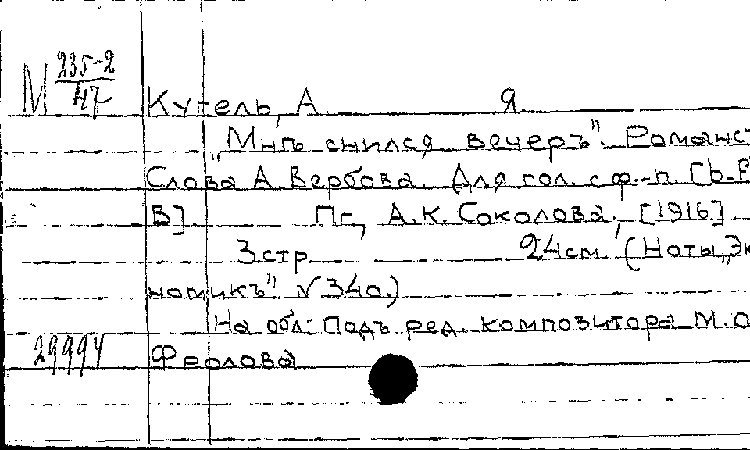 М 235-2
47
Кугель, А Я
"Мнѣ снился вечеръ". Романс
Слова А. Вербова. Для гол. с ф.-п. [b-
В] Пг, А.К. Соколова, [1916]
3 стр 24 см (Ноты „Эк
номикъ" √ 340.)
На обл: Подъ ред. композитора М.О
29994 Фролова